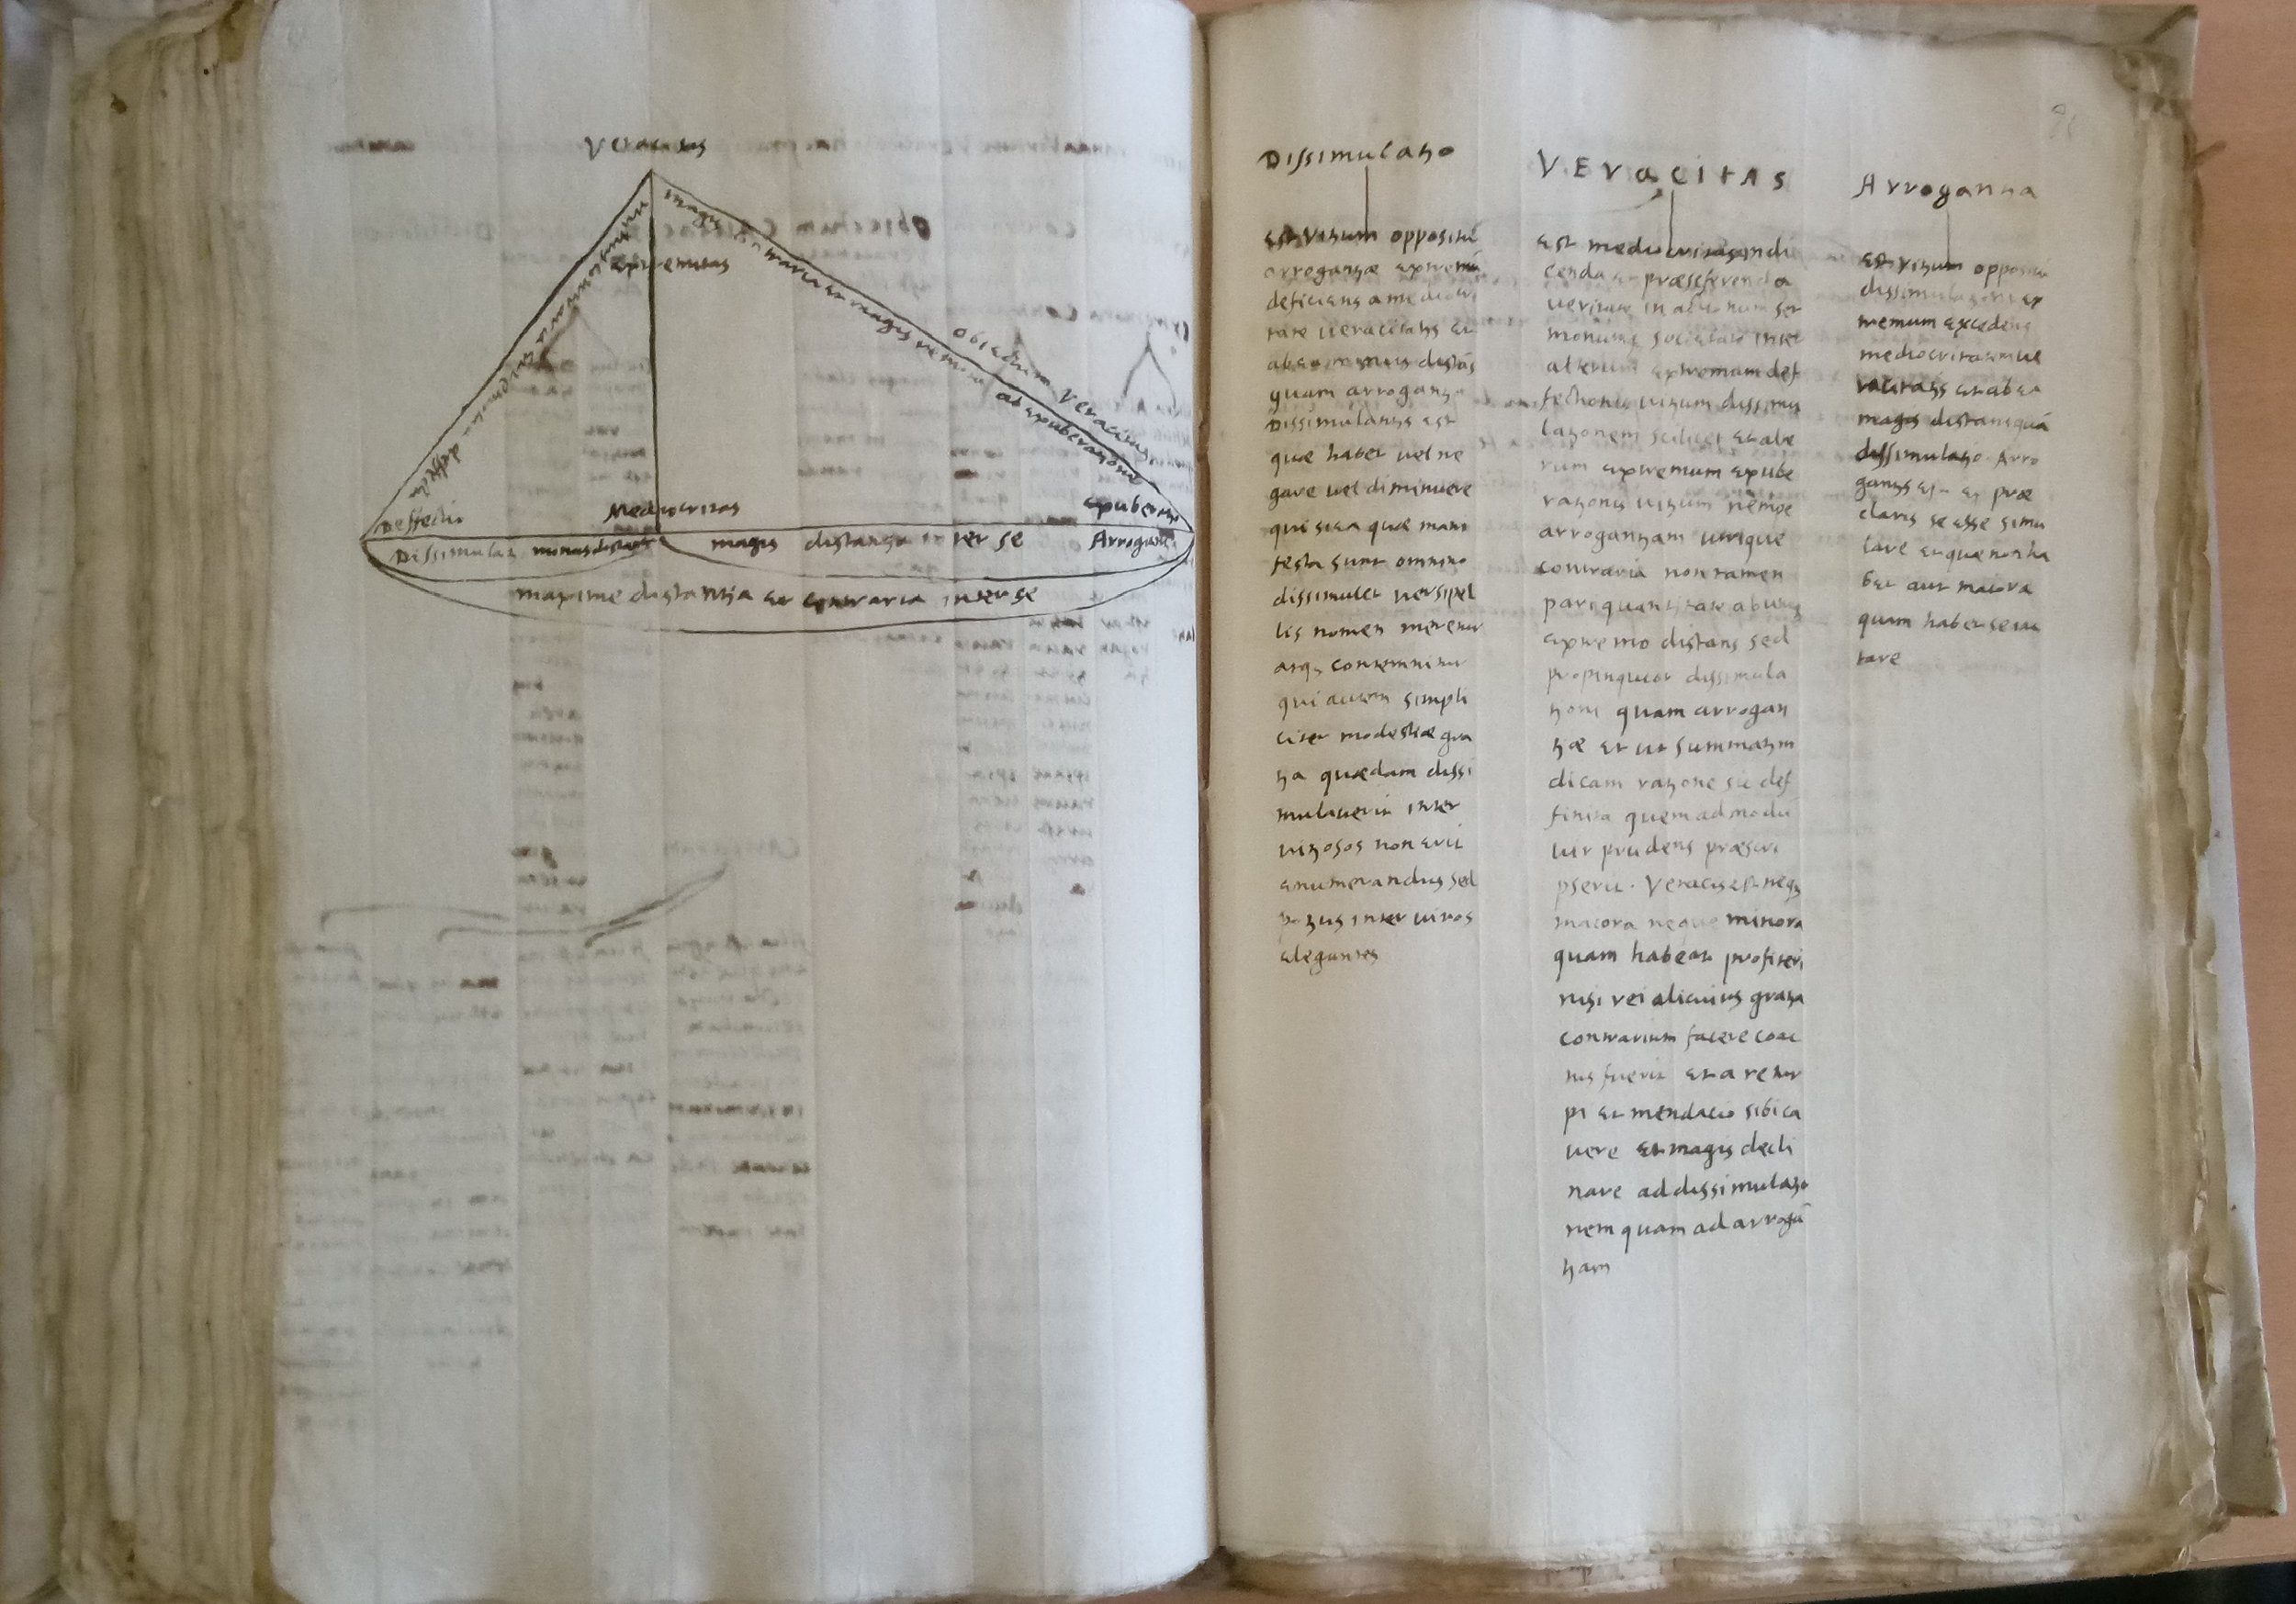 Veracitas
Extremitas
Obiectum Veracitatis
ab exuberatione
Deffectio
Mediocritas
Exuberatio
Dissimulat minus distant
magis distantia inter se
Arrogantia
maxime distantia et contraria inter se
Dissimulatio
Est vitium oppositū
arrogantiæ extremū
deficiens a mediocri
tate veracitatis et
ab ea minus distās
quam arrogantia
Dissimulantis est
quæ habet vel ne
gare vel diminuere
qui si ea quæ mani
festa sunt omnino
dissimulet versipel
lis nomen meretur
atq; contemnitur
qui autem simpli
citer modestiæ gra
tia quædam dissi
mulaverit inter
vitiosos non erit
enumerandus sed
potius inter viros
elegantes
VEracitas
Est mediocritas in di
cenda et præseferenda
veritate in
monum societate inter
alterum extremum def
fectionis vitium dissimu
lationem scilicet et alte
rum extremum exube
rationis vitium nempe
arrogantiam utrique
contraria non tamen
pari quantitate ab utroq;
extremo distans sed
propinquior dissimula
tioni quam arrogan
tiæ et ut summatim
dicam ratione sic def
finita quemadmodū
vir prudens præscri
pserit. Veracis est neq;
maiora neque minora
quam habeat profiteri
nisi rei alicuius gratia
contrarium facere coac
tus fuerit et a re tur
pi et mendacio sibi ca
vere et magis decli
nare ad dissimulatio
nem quam ad arrogā
tiam
Arrogantia
Est vitium oppositū
dissimulationi ex
tremum excedens
mediocritatem ve
racitatis et ab ea
magis distans quā
dissimulatio. Arro
gantis est ea præ
claris se esse simu
lare et quæ non ha
bet aut maiora
quam habet se iac
tare